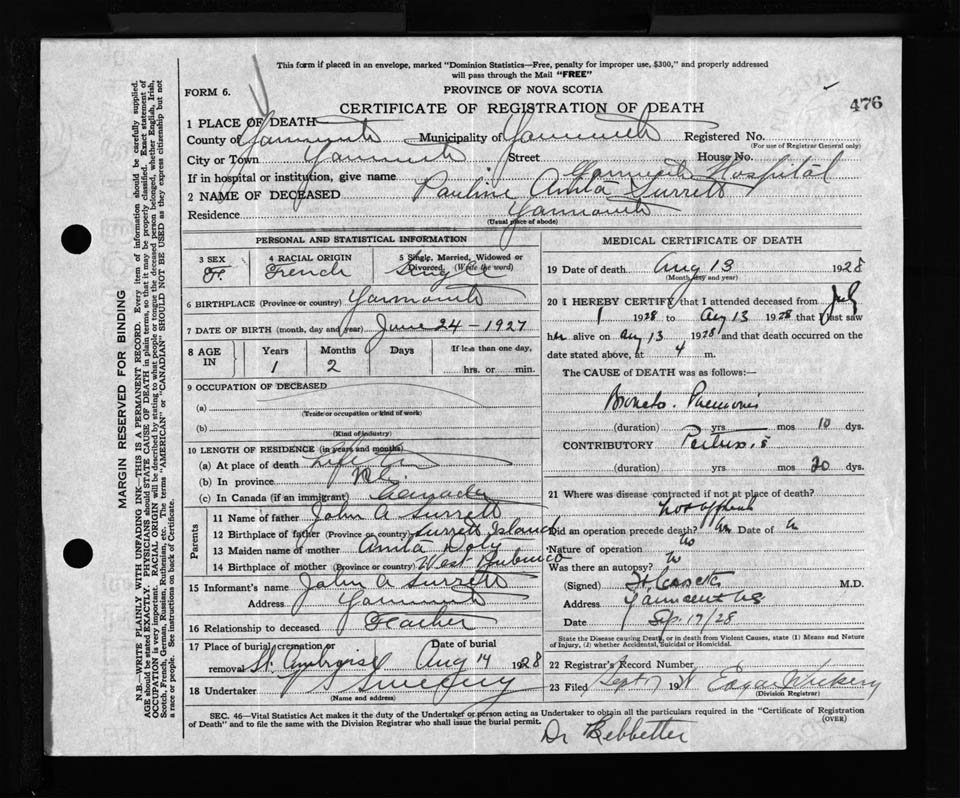 This form if placed in an envelope, marked "Dominion Statistics—Free, penalty for improper use, $300," and properly addressed
will pass through the Mail "FREE"
FORM 6.
PROVINCE OF NOVA SCOTIA
476
CERTIFICATE OF REGISTRATION OF DEATH
1 PLACE OF DEATH
County of Yarmouth Municipality of Yarmouth Registered No.
(For use of Registrar General only)
City or Town Yarmouth Street House No.
If in hospital or institution, give name Yarmouth Hospital
2 NAME OF DECEASED Pauline Anita Surrett
Residence Yarmouth
(Usual place of abode)
PERSONAL AND STATISTICAL INFORMATION
3 SEX F. 4 RACIAL ORIGIN French 5 Single, Married, Widowed or Divorced. (Write the word) Single
6 BIRTHPLACE (Province or country) Yarmouth
7 DATE OF BIRTH (month, day and year) June 24 - 1927
8 AGE IN Years 1 Months 2 Days If less than one day, hrs. or min.
9 OCCUPATION OF DECEASED
(a)
(Trade or occupation or kind of work)
(b)
(Kind of industry)
10 LENGTH OF RESIDENCE (in years and months)
(a) At place of death
(b) In province
(c) In Canada (if an immigrant) Canada
Parents
11 Name of father John A Surrett
12 Birthplace of father (Province or country) Surrett Island
13 Maiden name of mother Anita
14 Birthplace of mother (Province or country) West Pubnico
15 Informant's name John A Surrett
Address Yarmouth
16 Relationship to deceased Father
17 Place of burial, cremation or removal St. Ambroise Date of burial Aug 14 1928
18 Undertaker Sweeny
(Name and address)
MEDICAL CERTIFICATE OF DEATH
19 Date of death Aug 13 1928
(Month, day and year)
20 I HEREBY CERTIFY that I attended deceased from July
1 1928 to Aug 13 1928 that I last saw
her alive on Aug 13 1928 and that death occurred on the
date stated above, at 4 m.
The CAUSE of DEATH was as follows:—
Broncho. Pneumonia
(duration) yrs mos 10 dys.
CONTRIBUTORY Pertussis
(duration) yrs mos 20 dys.
21 Where was disease contracted if not at place of death?
Did an operation precede death? Date of
Nature of operation no
Was there an autopsy?
(Signed) M.D.
Address Yarmouth NS
Date Sep. 17/28
State the Disease causing Death, or in death from Violent Causes, state (1) Means and Nature
of Injury, (2) whether Accidental, Suicidal or Homicidal.
22 Registrar's Record Number
23 Filed Sept 19
(Division Registrar)
SEC. 46—Vital Statistics Act makes it the duty of the Undertaker or person acting as Undertaker to obtain all the particulars required in the "Certificate of Registration
of Death" and to file the same with the Division Registrar who shall issue the burial permit.
(OVER)
Dr
MARGIN RESERVED FOR BINDING
N.B.—WRITE PLAINLY WITH UNFADING INK—THIS IS A PERMANENT RECORD. Every item of information should be carefully supplied.
AGE should be stated EXACTLY. PHYSICIANS should STATE CAUSE OF DEATH in plain terms, so that it may be properly classified. Exact statement of
OCCUPATION is very important. RACIAL ORIGIN will be described by stating to what people or tongue the deceased person belonged, whether English, Irish,
Scotch, French, German, Russian, Ruthenian, etc. The terms "AMERICAN" or "CANADIAN" SHOULD NOT BE USED as they express citizenship but not
a race or people. See instructions on back of Certificate.